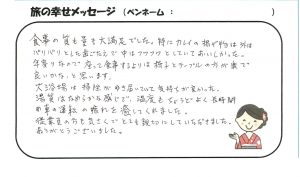 旅の幸せメッセージ (ペンネーム: )
食事の質も量も大満足でした。特にカレイの揚げ物は外は
パリパリとした歯ごたえで中はフワフワとしていておいしかった。
年寄りなので座って食事するよりは椅子とテーブルの方が楽で
良いかな、と思います。
大浴場は掃除がゆき届いていて気持ちが良かった。
温泉はなめらかな感じで、温度もちょうどよく長時間
の車の運転の疲れを癒してくれました。
従業員の方も気さくでとても親切にしていただきました。
ありがとうございました。